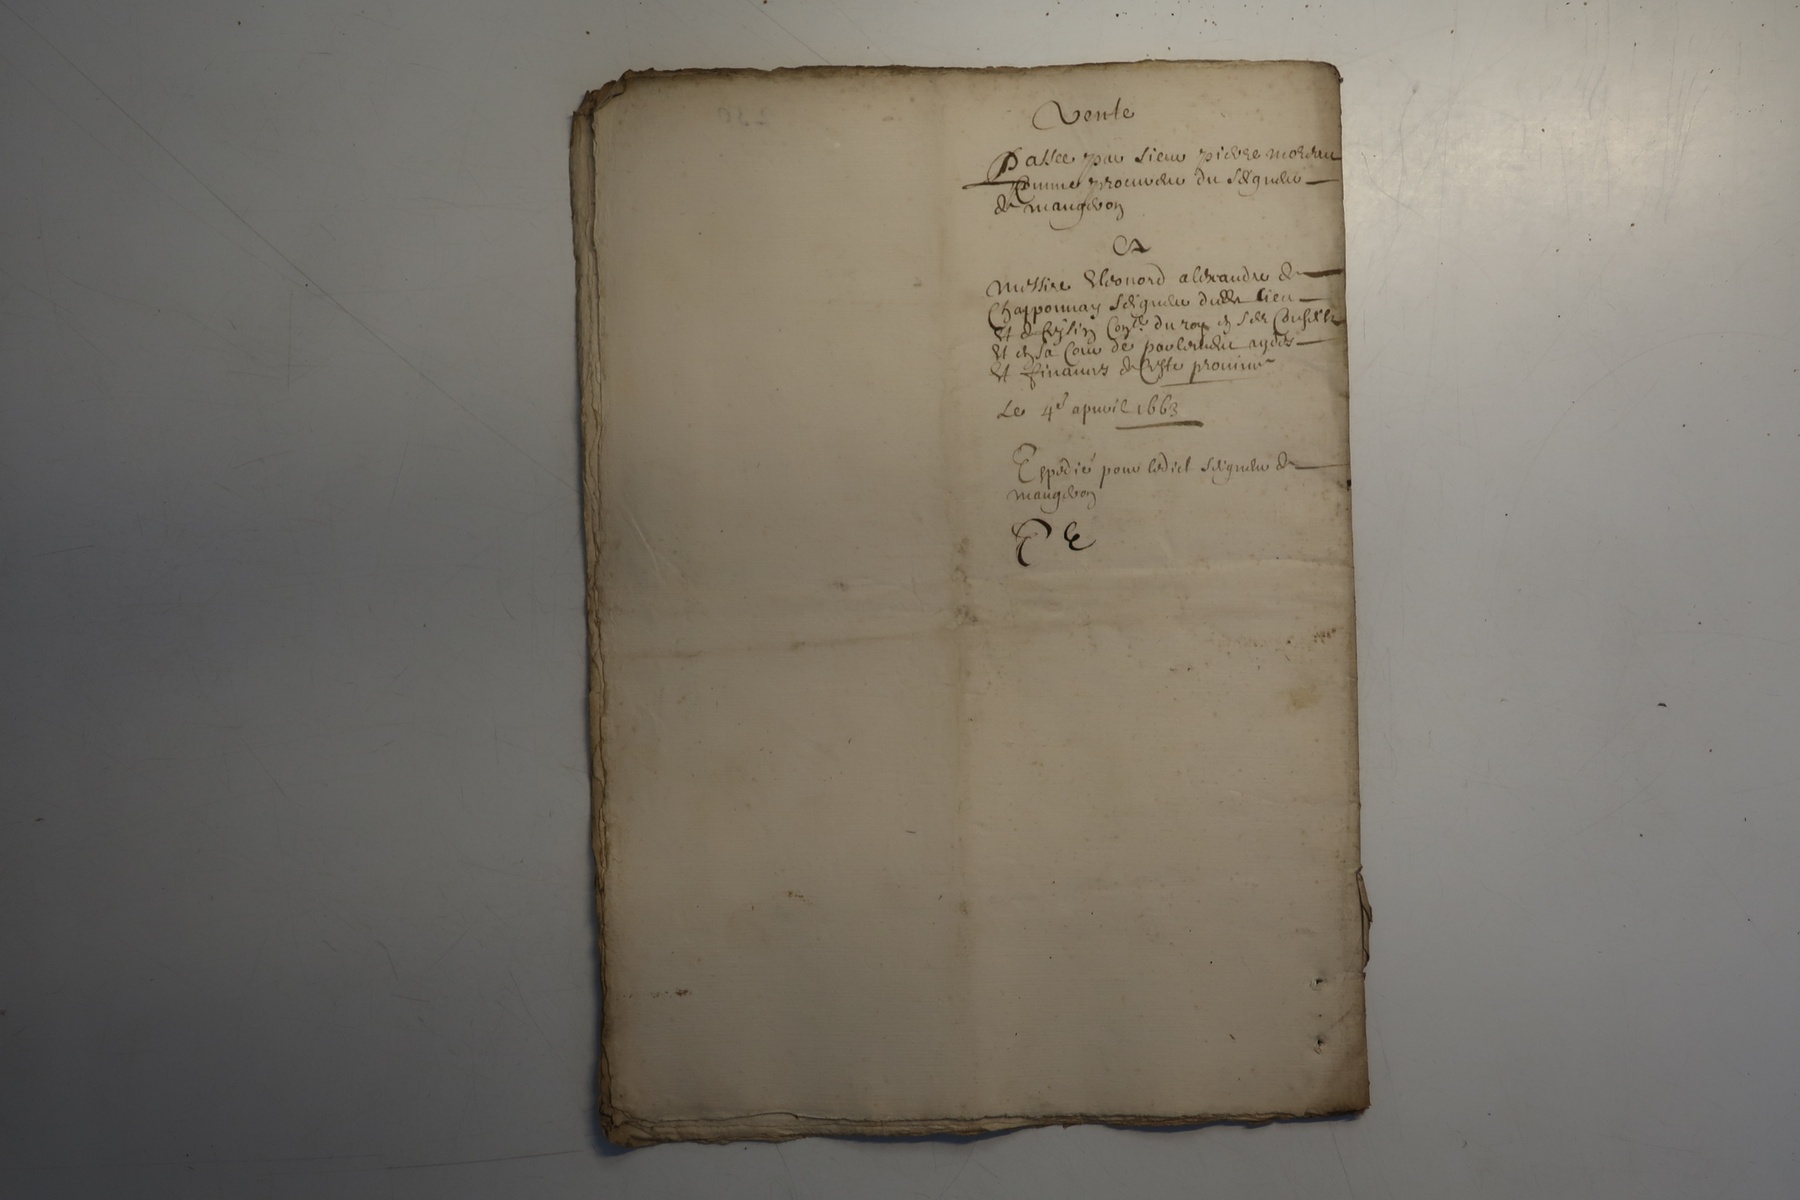 Vente
Passee par sieur pierre moreau
comme procureur du seigneur
de maugeron
A
messire Eleonord alexandre de
Chapponnay seigneur dudit lieu
et d'Eysin Con.er du roy en ses Conseils
et en sa Cour de parlement aydes
et finances de Ceste province
Le 4e apvril 1663
Expedié pour ledict seigneur de
maugeron